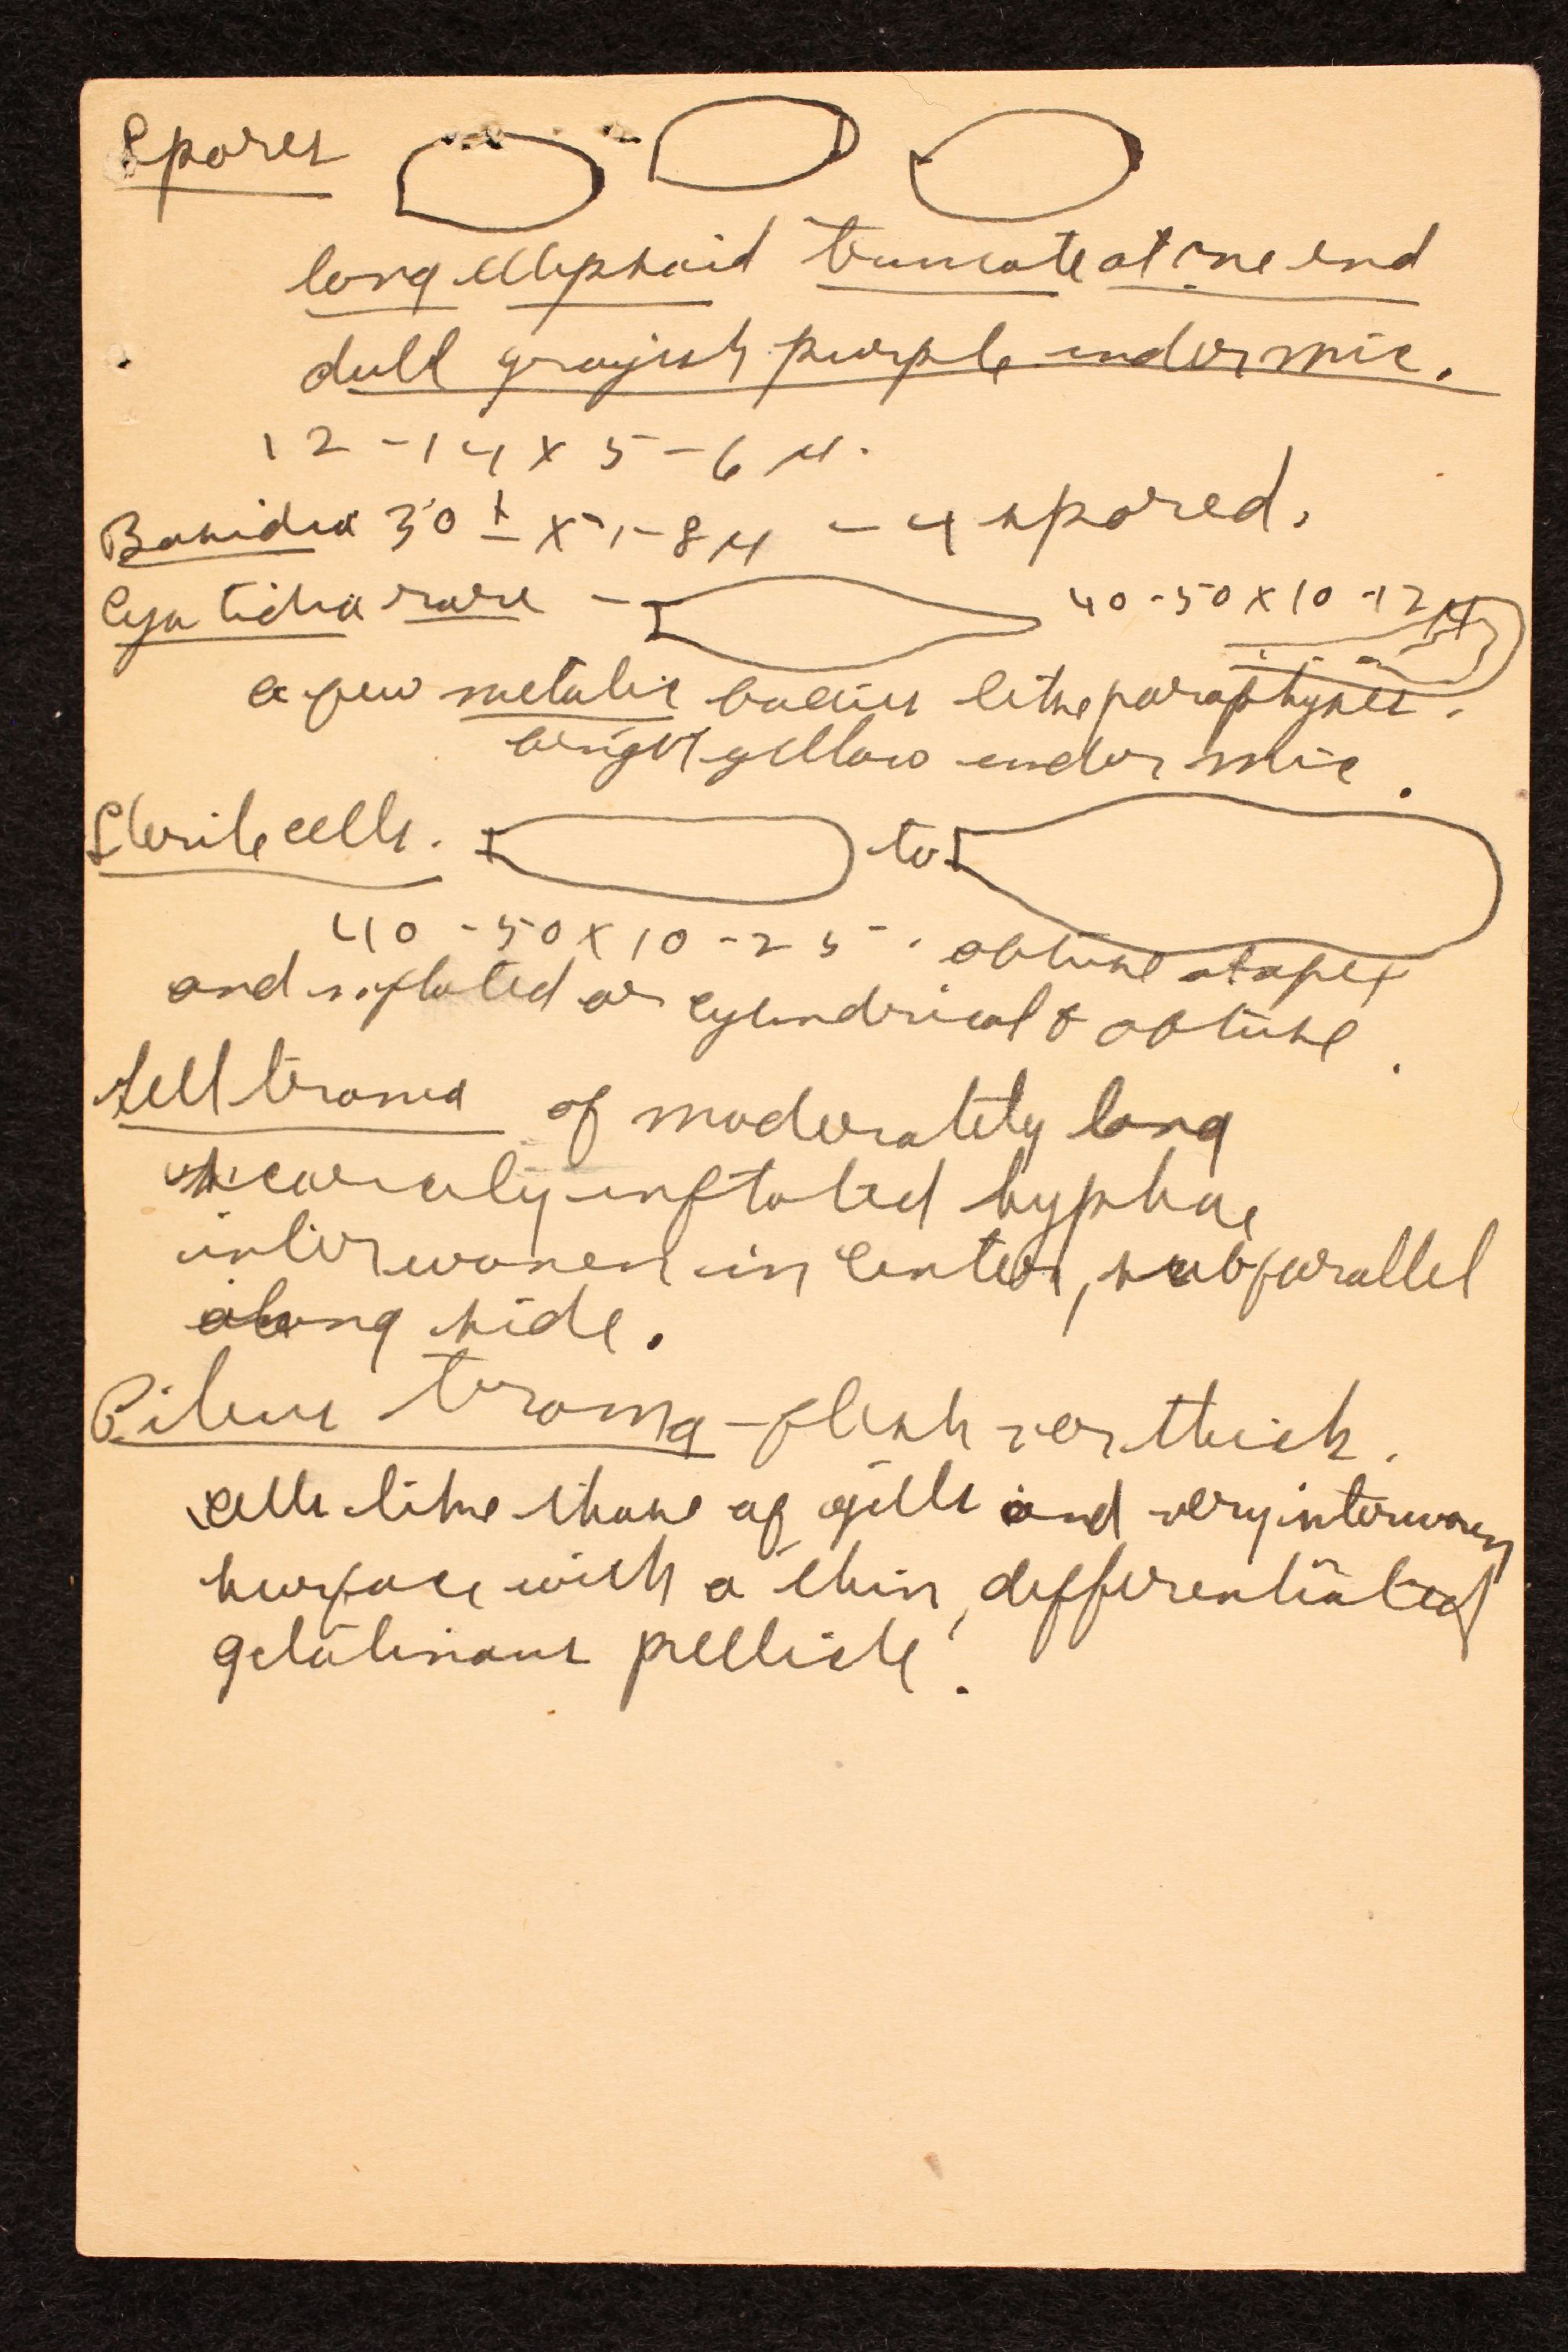 Spores
long ellipsoid truncate at one end
dull grayish purple under mic.
12-14 x 5-6 µ.
Basidia 30 ± x 7-8 µ - 4 spored.
Cystidia rare - 40-50 x 10-12 µ
a few metalic bodies like paraphyses.
bright yellow under mic.
Sterile cells. to
40-50 x 10-25. obtuse at apex
and inflated or cylindrical & obtuse.
Gill trama of moderately long
scarcely inflated hyphae
interwoven in center, subparallel
along side.
Pileus trama - flesh thick.
cells like those of gills and very interwoven
surface with a thin, differentiated
gelatinous pellicle.